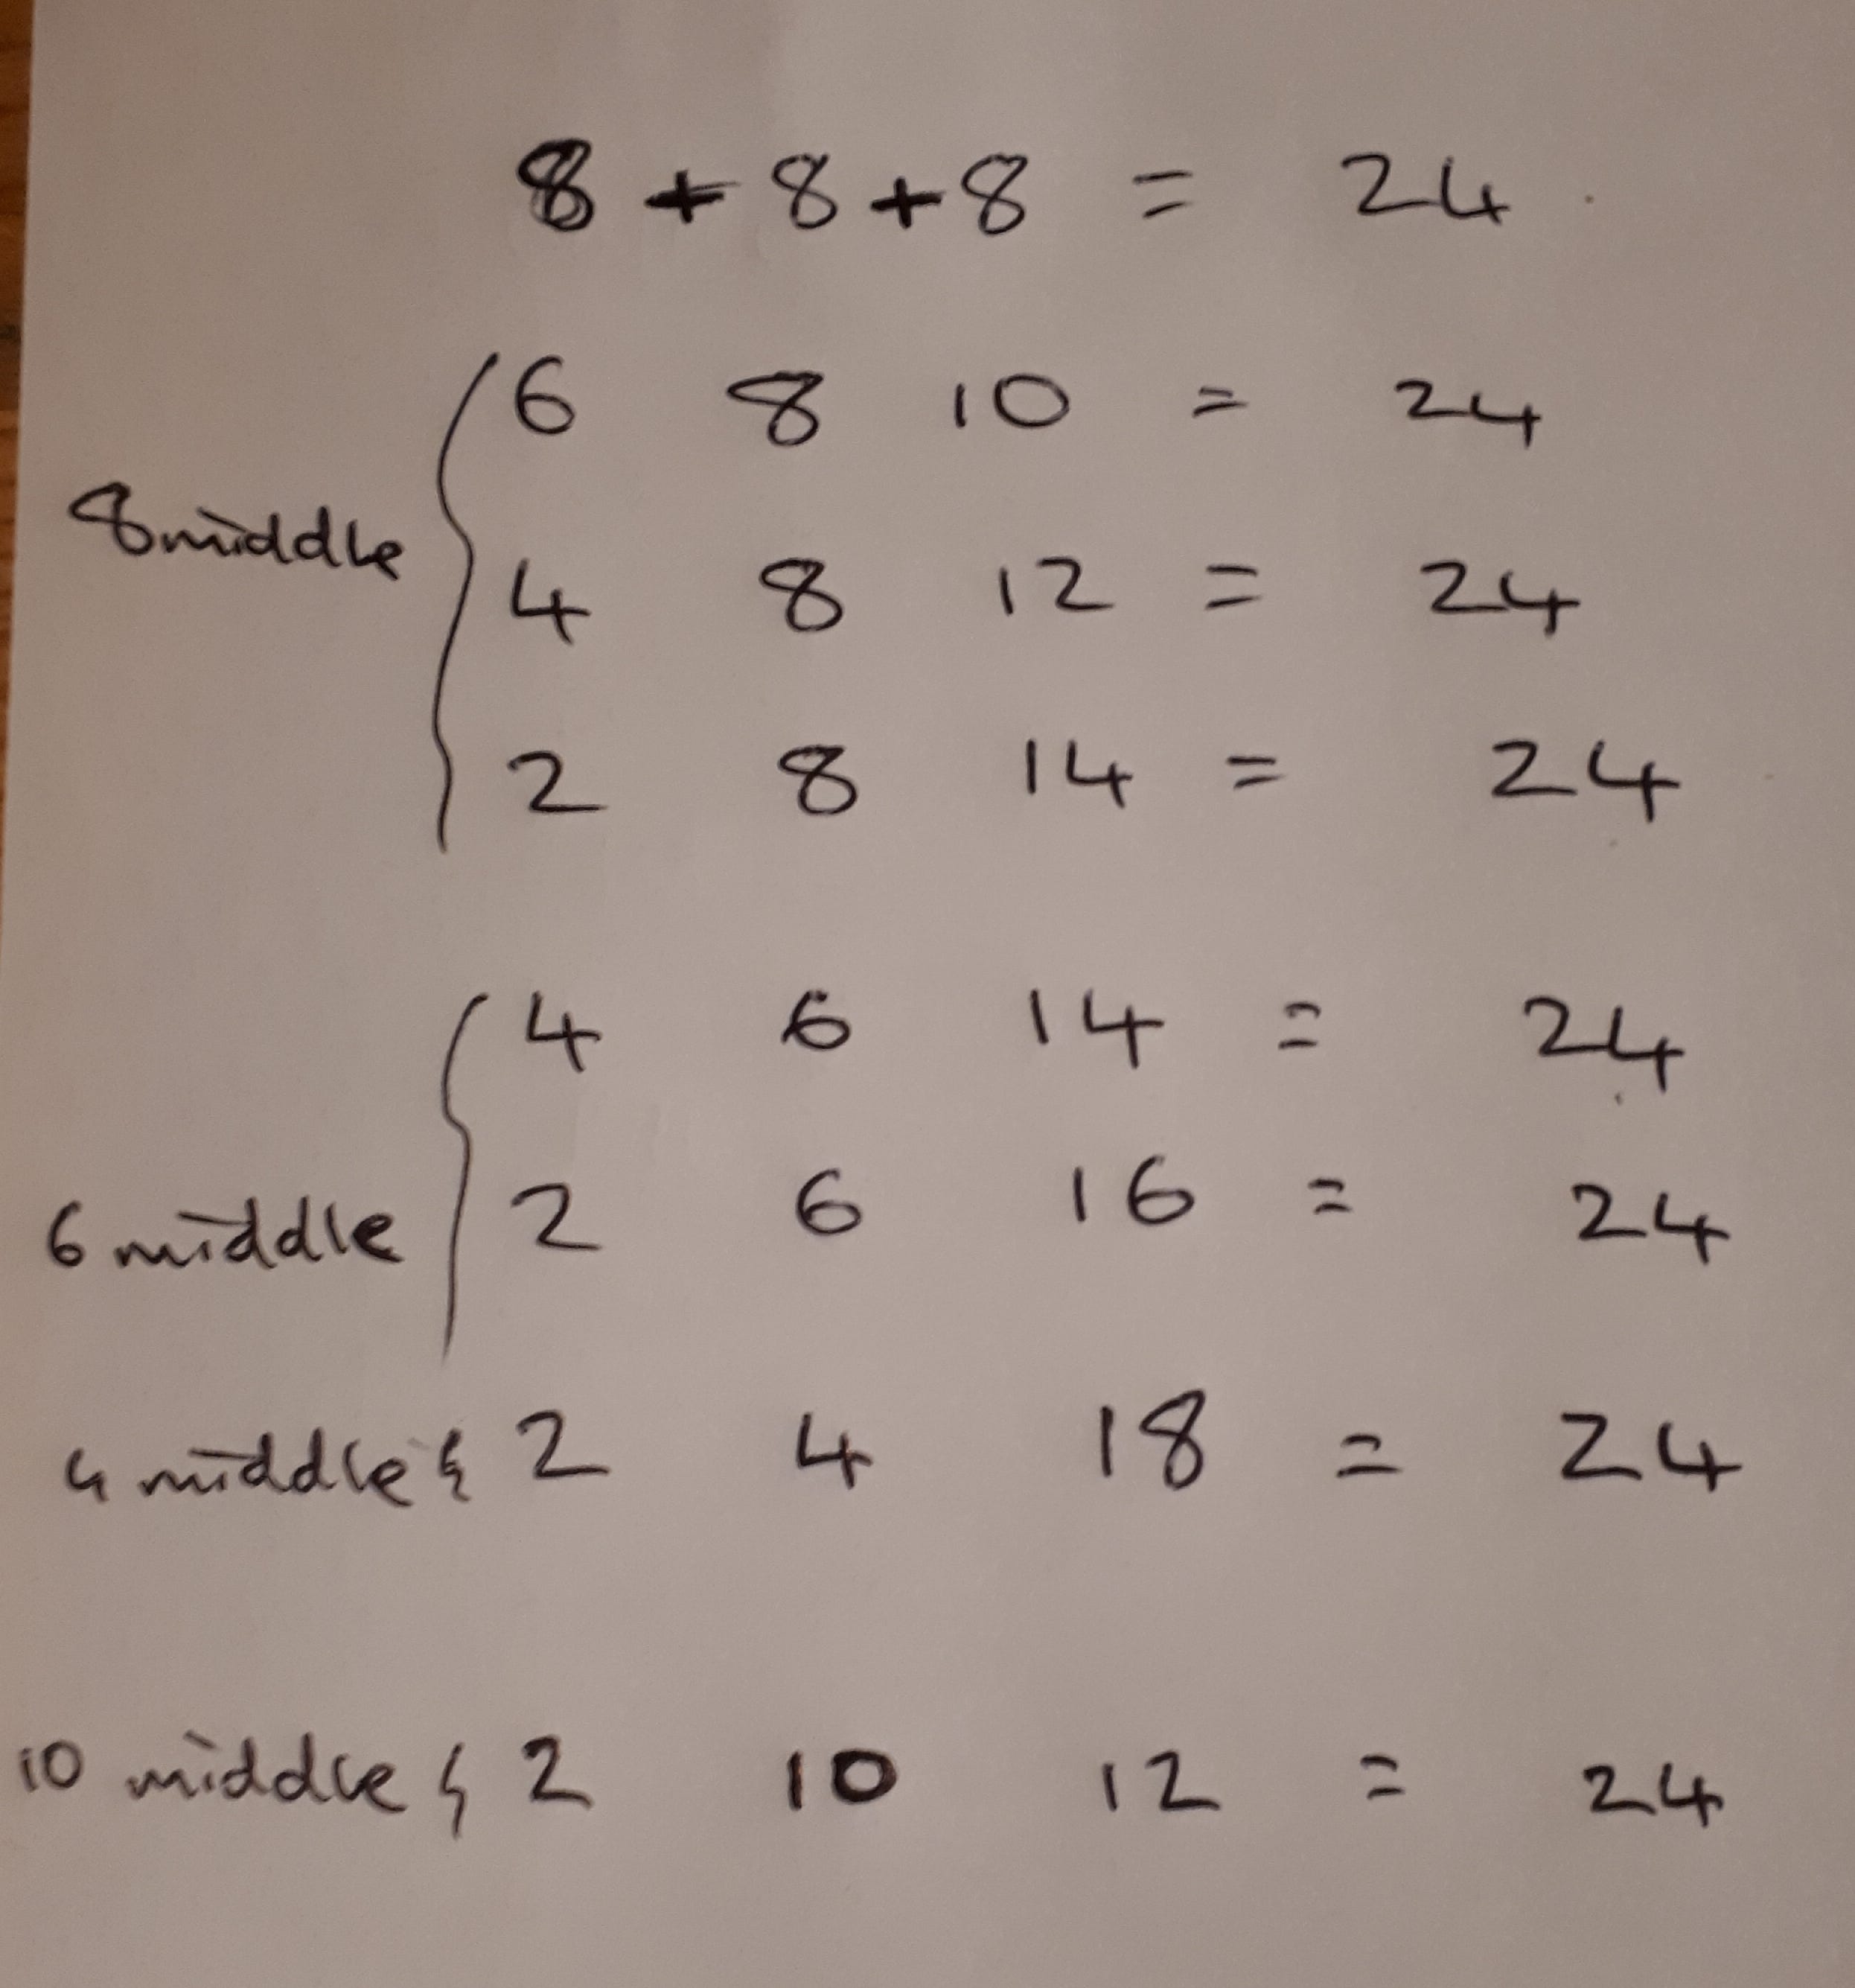 8 + 8 + 8 = 24
6 8 10 = 24
8 middle { 4 8 12 = 24
2 8 14 = 24
4 6 14 = 24
6 middle { 2 6 16 = 24
4 middle { 2 4 18 = 24
10 middle { 2 10 12 = 24